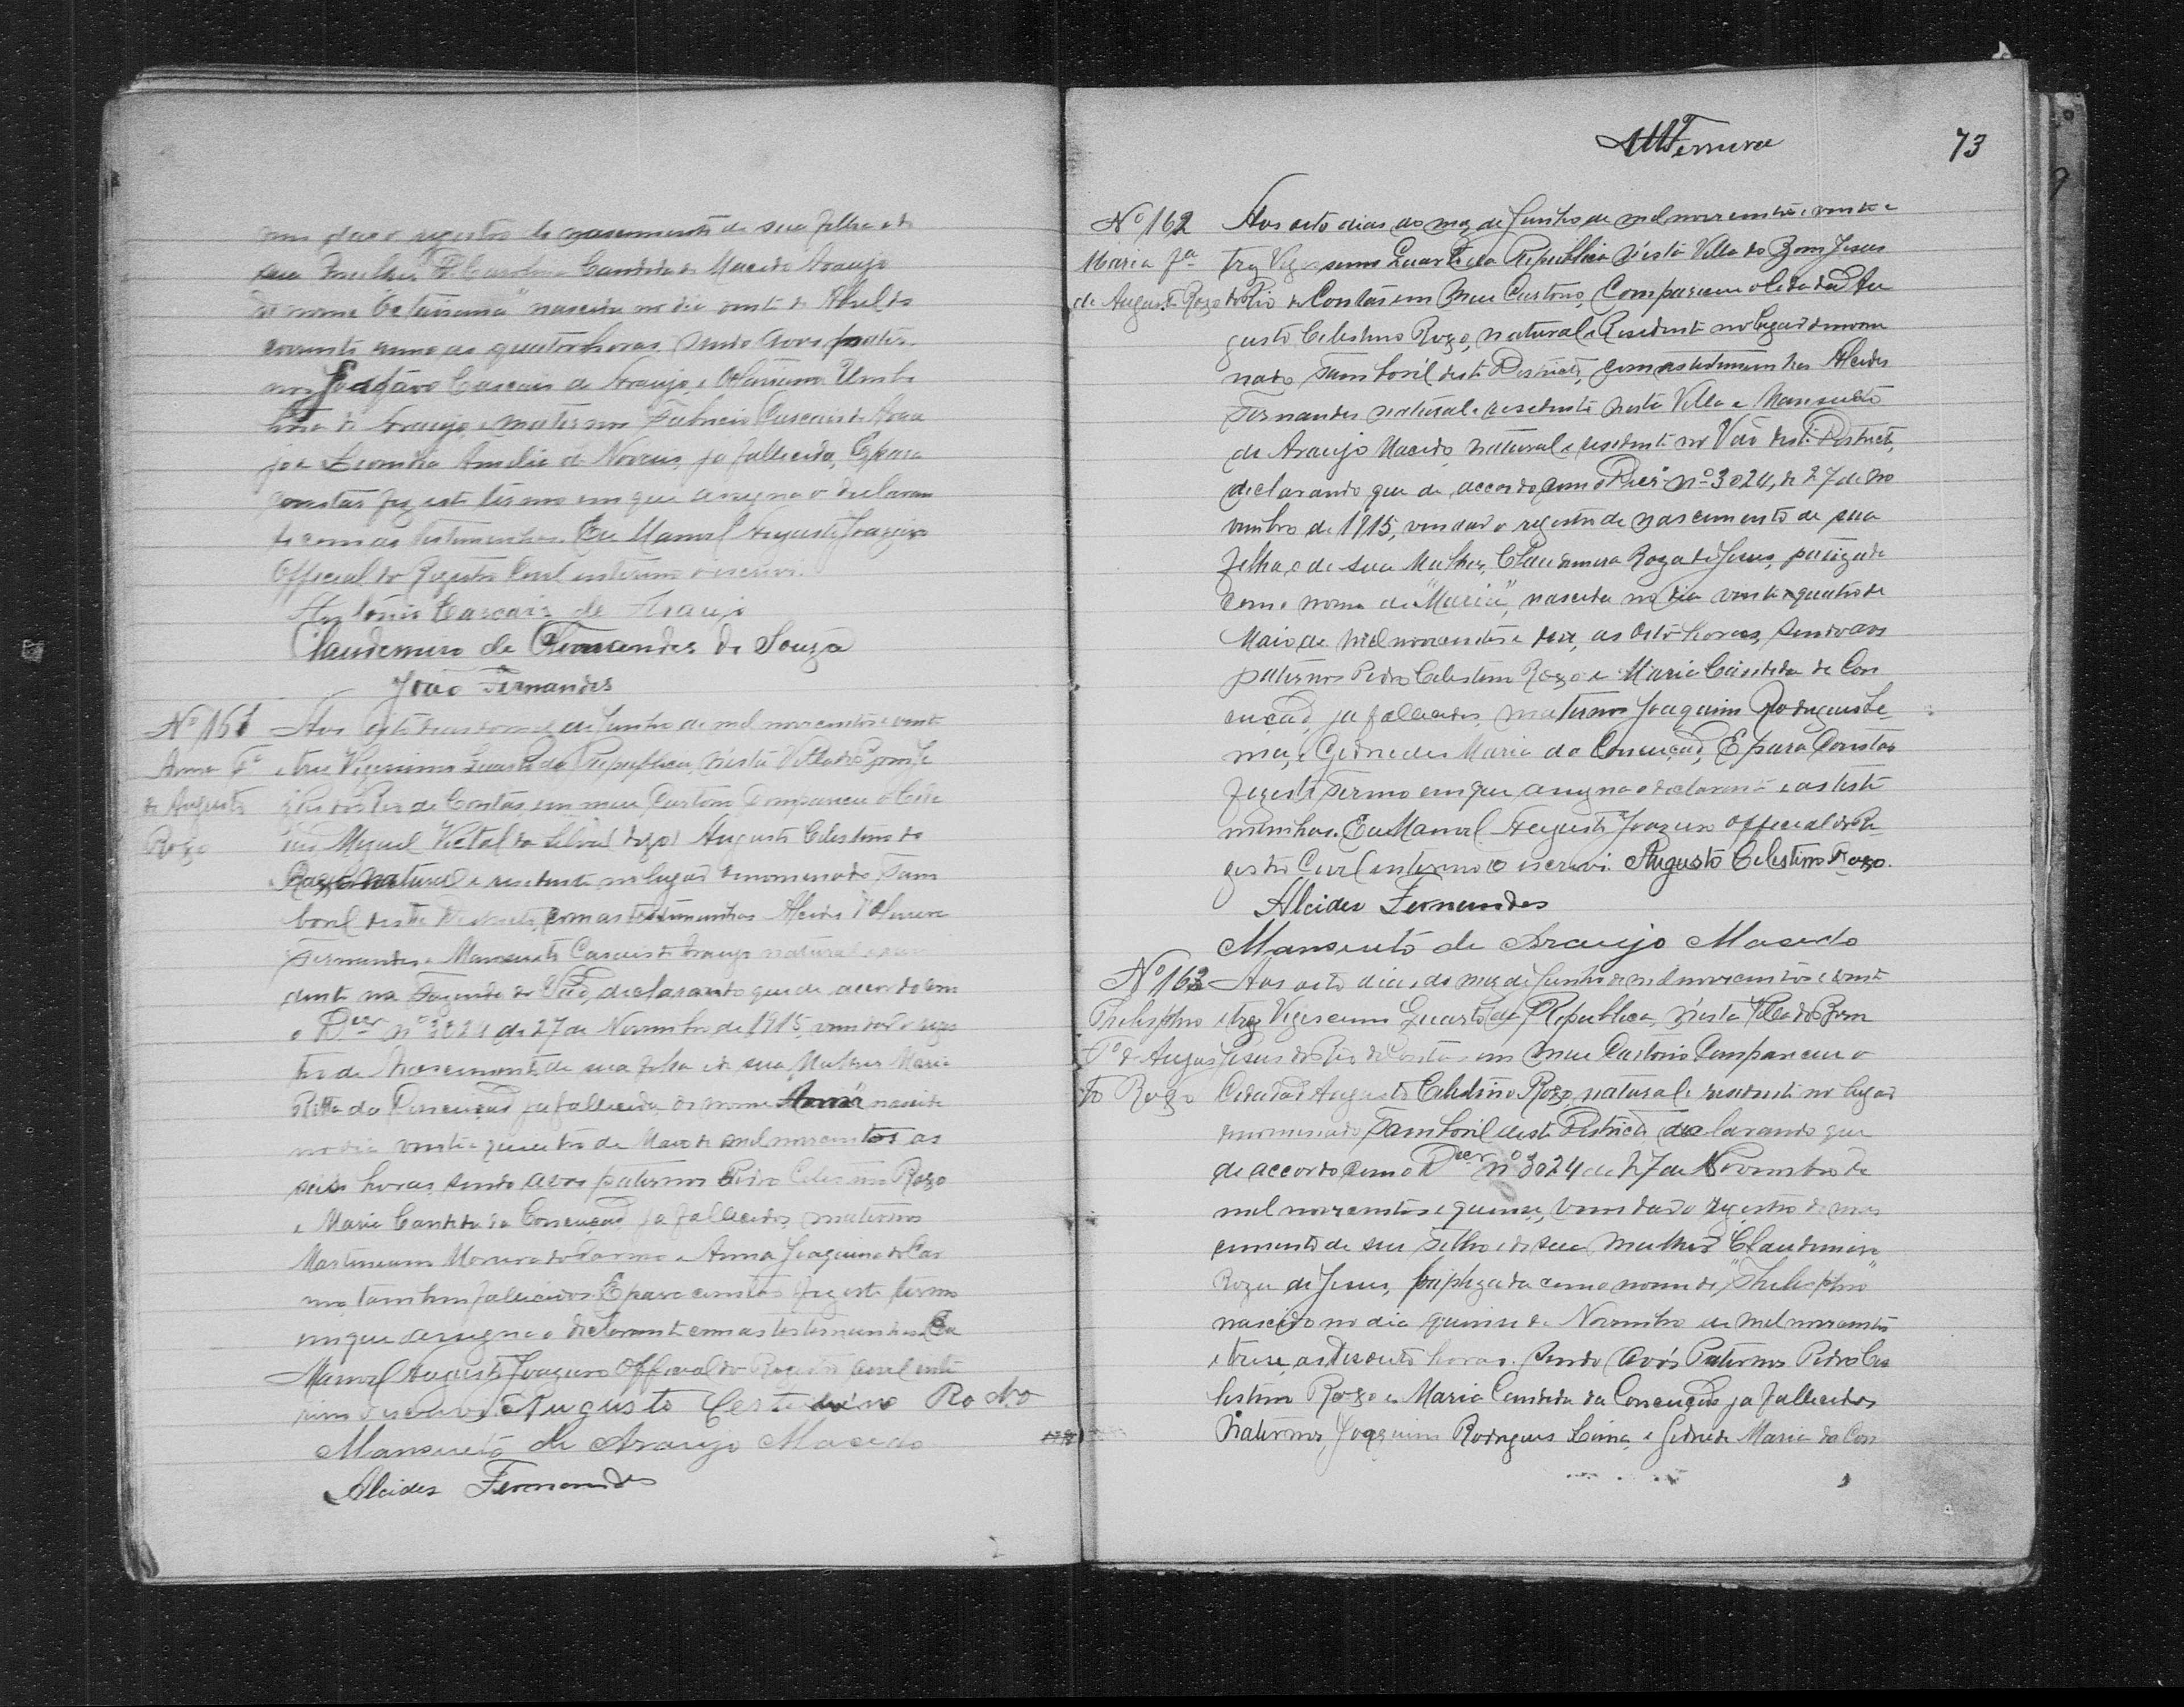 vem dar o registro de nascimento de sua filha e de
sua mulher D. Carolina Candida de Macedo Araujo
de nome nascida no dia vinte de Abril do
corrente anno as quatro horas sendo avós pater
nos Cascais de Araujo e Umbe
lina de Araujo e maternos Fabricio Cascais de Arau
jo e Leonidia Amelia de Novaes, ja fallecida, E para
constar fiz este termo em que assigna o declaran
te com as testemunhas. Eu Manoel Augusto Joazeiro
Official do Registro Civil interino o escrevi.
Antônio Cascais de Araujo
Claudemiro de Fernandes de Souza
João Fernandes
Nº 161
Anna Fª
de Augusto
Rozo
Aos oito dias do mez de Junho de mil novecentos e vinte
e tres Vigesimo Quarto da Republica, n'esta Villa do Bom Je
zus do Rio de Contas, em meu Cartorio Compareceu o Cida
dão Miguel Victal da Silva digo Augusto Celestino do
Rozo natural e residente no lugar denominado Tam
boril deste Districto, com as testemunhas Alcides
Fernandes e Mansueto Cascais de Araujo natural e resi
dente na Fazenda do Vão, declarando que de accordo com
o Decr nº 3024 de 27 de Novembro de 1915, vem dar o regis
tro de Nascimento de sua filha e de sua Mulher Maria
Ritta da Conceição ja fallecida de nome "Anna" nascida
no dia vinte e quatro de Maio de mil novecentos as
seis horas, sendo avos paternos Pedro Celestino Rozo
e Maria Candida da Conceição ja fallecidos, maternos
Martiniano Moreira do Carmo e Anna Joaquina do Car
mo tambem fallecidos. E para constar fiz este termo
em que assigna o declarante com as testemunhas. Eu
Manoel Augusto Joazeiro Official do Registro Civil inte
rino o escrevi. Augusto Celestino Rozo
Mansuetô de Araujo Macedo
Alcides Fernandes
73
Nº 162
Maria Fª
de Augusto Rozo
Aos oito dias do mez de Junho de mil novecentos e vinte e
trez Vigesimo Quarto da Republica n'esta Villa do Bom Jesus
do Rio de Contas em meu Cartorio, Compareceu o Cidadão Au
gusto Celestino Rozo, natural e Residente no lugar denomi
nado Tamboril deste Districto, com as testemunhas Alcides
Fernandes natural e residente nesta Villa e Mansueto
de Araujo Macedo, natural e residente no Vão deste Districto,
declarando que de accordo com o Decr nº 3024, de 27 de No
vembro de 1915, vem dar o registro de nascimento de sua
filha e de sua Mulher, Claudimira Roza de Jesus, batizada
com o nome de "Maria", nascida no dia vinte e quatro de
Maio de mil novecentos e dez, as oito horas, sendo avos
paternos Pedro Celestino Rozo e Maria Candida da Con
ceição, ja fallecidos, maternos Joaquim Rodrigues Le
ma, e Gedriedes Maria da Conceição, E para Constar
fiz este Termo em que assigna o declarante e as teste
munhas. Eu Manoel Augusto Joazeiro Official do Re
gistro Civil interino o escrevi. Augusto Celestino Rozo.
Alcides Fernandes
Mansuetô de Araujo Macedo
Nº 163
Thelesphro
Fº de Augus
to Rozo
Aos oito dias do mez de Junho de mil novecentos e vinte
e trez Vigesimo Quarto da Republica, n'esta Villa do Bom
Jesus do Rio de Contas em meu Cartorio Compareceu o
Cidadão Augusto Celestino Rozo, natural e residente no lugar
denominado Tamboril deste Districto declarando que
de accordo com o Decr nº 3024 de 27 de Novembro de
mil novecentos e quinse, vem dar o registro de nas
cimento de seu Filho e de sua mulher Claudimira
Roza de Jesus, baptizada com o nome de "Thelesphro"
nascido no dia quinse de Novembro de mil novecentos
e trese, as desoito horas. Sendo Avós Paternos Pedro Ce
lestino Rozo e Maria Candida da Conceição, ja fallecidos
Maternos, Joaquim Rodrigues Lima, e Gedriede Maria da Con